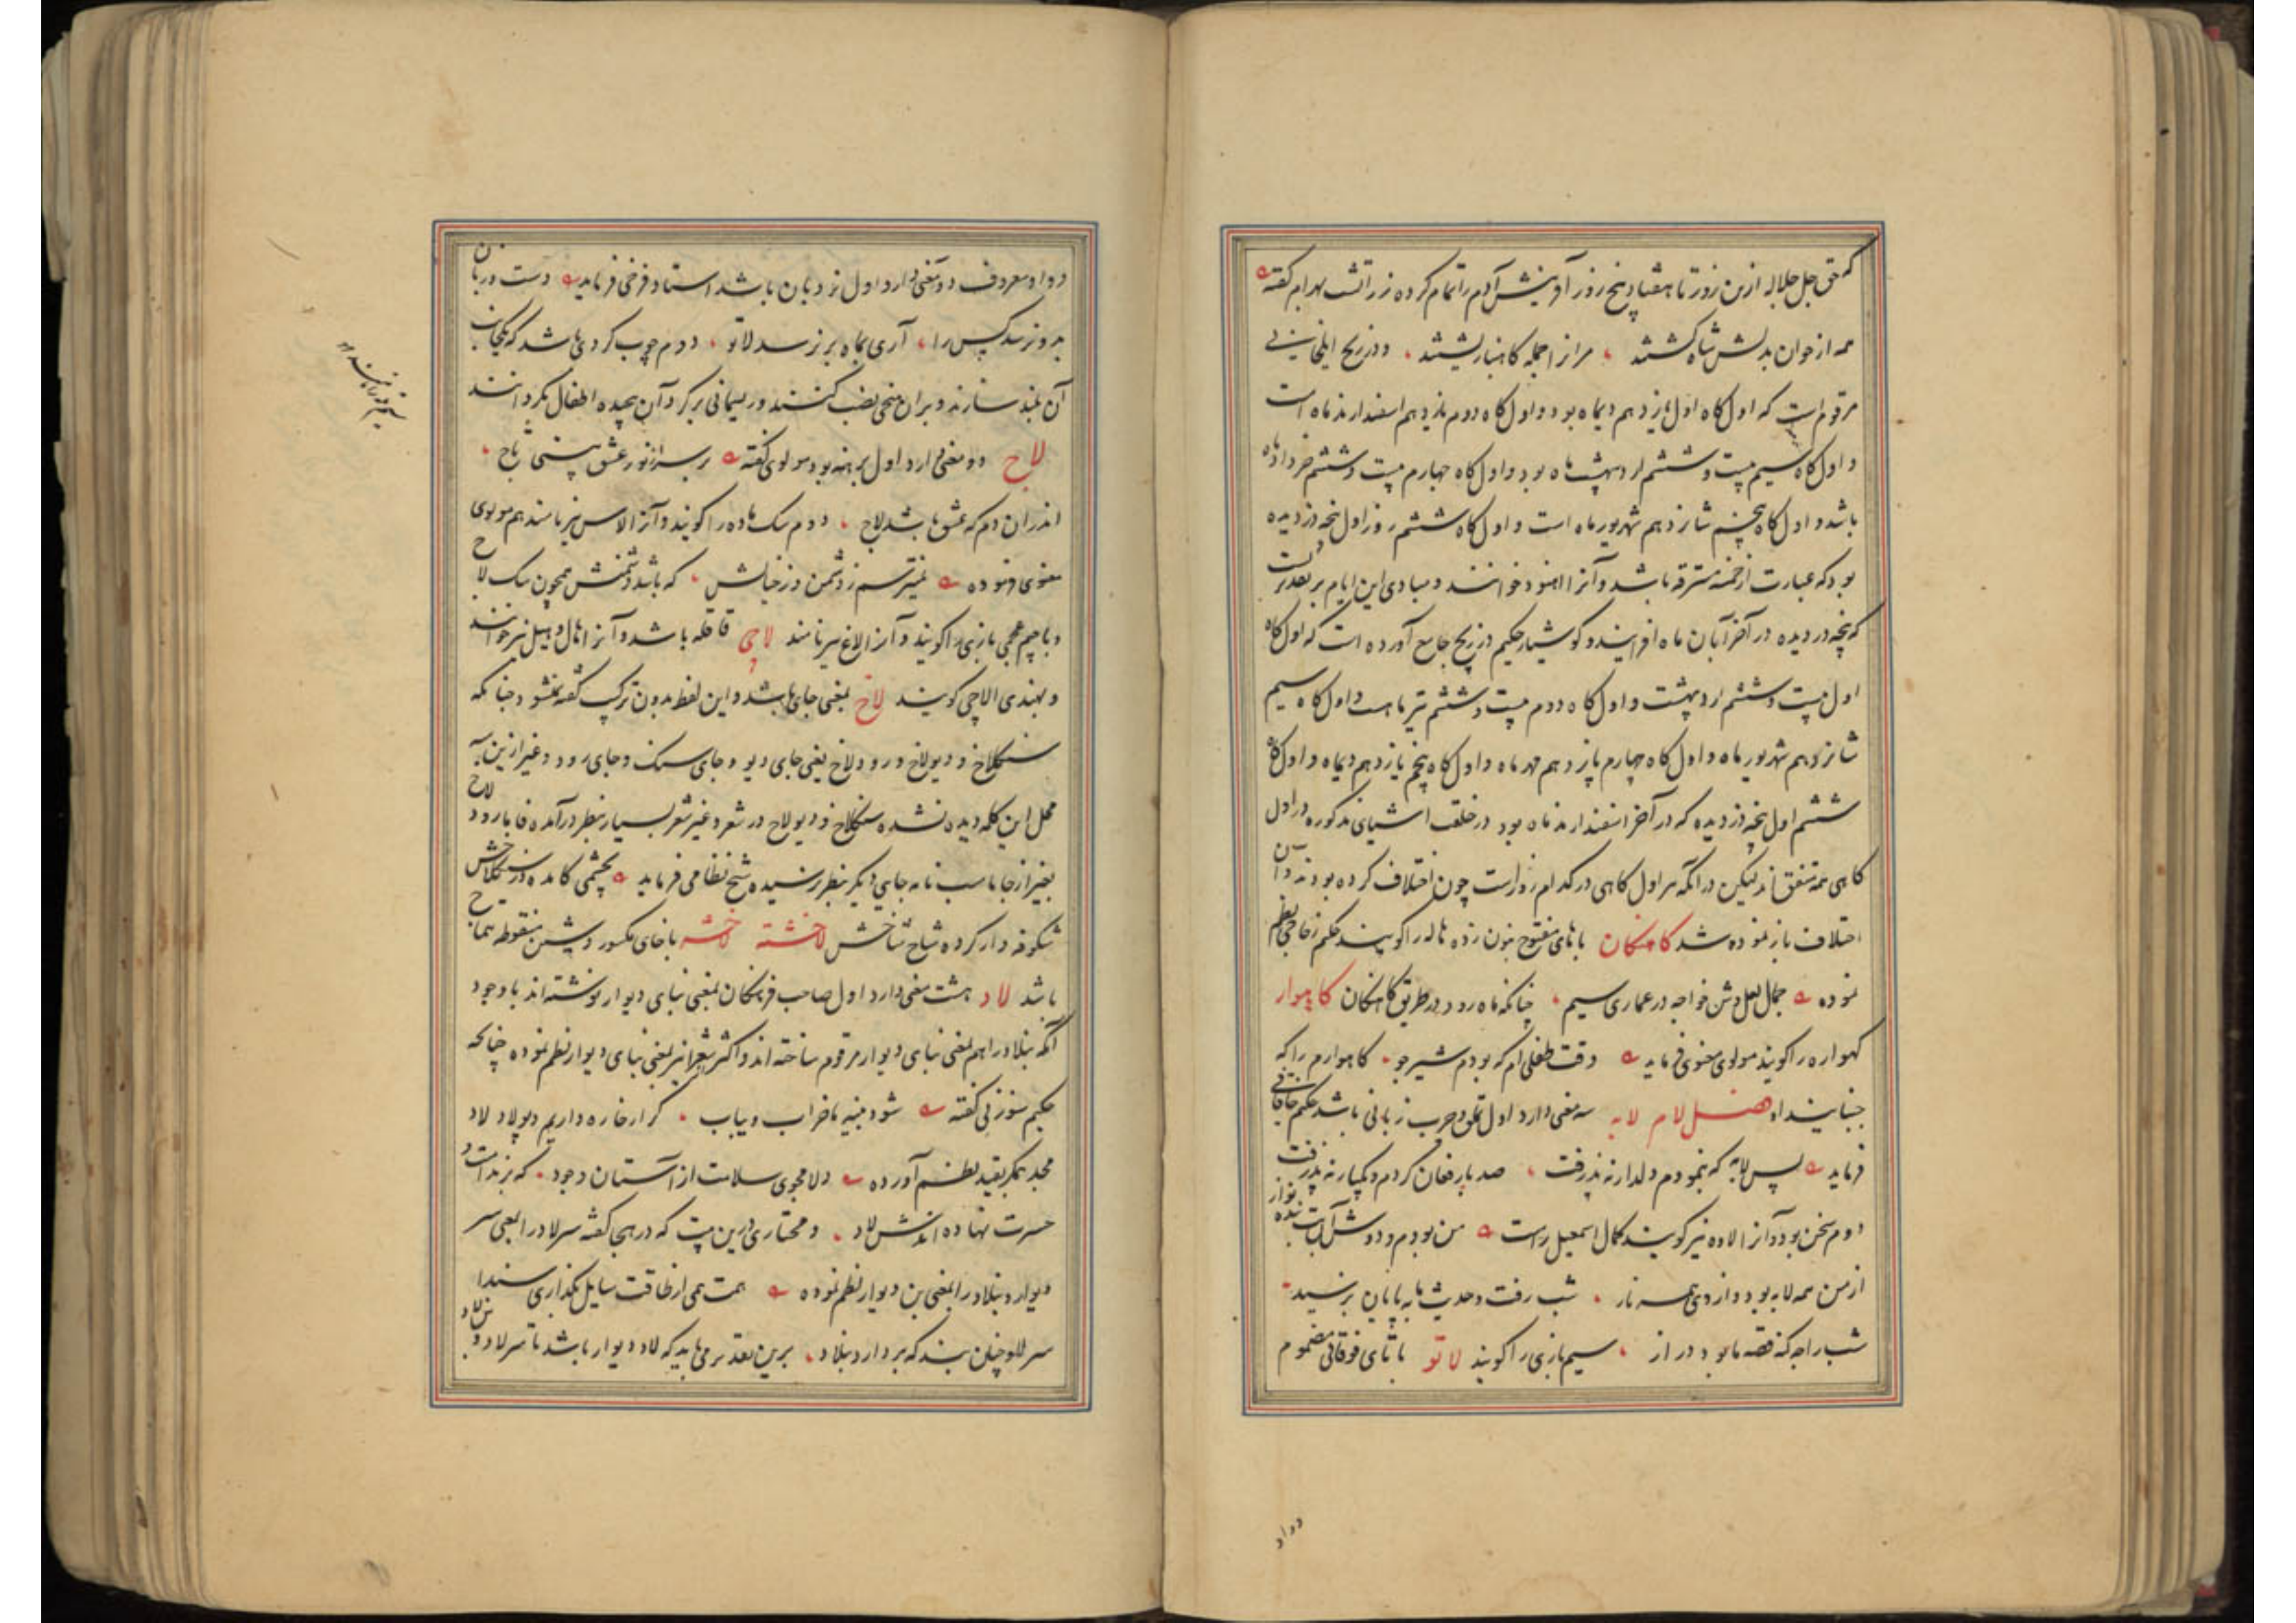 که حق جل جلاله ازین روز تا هفتاد پنج روز آفرینش آدم را تمام کرده زراتشت بهرام گفته
همه از خوان بدلش شاه کشتند مر از جمله کاهنبار بشتند و در زیج ایلخانی
مرقوم است که اول گاه اول یازدهم دیماه بود و اول گاه دوم یازدهم اسفندارمذ ماه است
و اول گاه سیم بیست و ششم اردیبهشت ماه بود و اول گاه چهارم بیست و ششم خرداد ماه
باشد و اول گاه پنجم شانزدهم شهریور ماه است و اول گاه ششم روز اول پنجه دزدیده
بود که عبارت از خمسه مسترقه باشد و آنرا اهنود خوانند و مبادی این ایام بر تقدیریست
که پنجه دزدیده در آخر آبان ماه افزایند و کوشیار حکیم در زیج جامع آورده است که اول گاه
اول بیست و ششم اردیبهشت و اول گاه دوم بیست و ششم تیر ماهست و اول گاه سیم
شانزدهم شهریور ماه و اول گاه چهارم پانزدهم مهر ماه و اول گاه پنجم یازدهم دیماه و اول گاه
ششم اول پنجه دزدیده که در آخر اسفندارمذ ماه بود در خلقت اشیای مذکوره در اول
گاهی همه متفق اند لیکن در آنکه هر اول گاهی در کدام روز است چون اختلاف کرده بودند آن
اختلاف باز نموده شد کاهکان با های مفتوح بنون زده هاله را گویند حکیم زجاجی نظم
نموده جمال لعل وش خواجه در عماری سیم چنانکه ماه رود در طریق کاهکان کاهوار
کهواره را گویند مولوی معنوی فرماید وقت طفلی ام که بودم شیر جو کاهوارم را که
جنبانید او فصل لام لابه سه معنی دارد اول تملق و چرب زبانی باشد حکیم خاقانی
فرماید پس لابه که بنمودم دلدار نپذرفت صد بار فغان کردم و یکبار نپذرفت
دوم سخن بود و آنرا لاوه نیز گویند کمال اسمعیل راست من بودم و دوش آن بت بنده نواز
از من همه لابه بود و از وی همه ناز شب رفت و حدیث ما به پایان نرسید
شب را چه گنه قصه ما بود دراز سیم بازی را گویند لاتو با تای فوقانی مضموم
دواو
دواو معروف دو معنی دارد اول نردبان باشد استاد فرخی فرماید دست دربان
برو نرسد کس را آری بماه بر نرسد لاتو دوم چوب کردی باشد که یکجانب
آن بلند سازند و بر آن میخی نصب کنند و ریسمانی بر کرد آن پیچیده اطفال بکردانند
لاج دو معنی دارد اول برهنه بود مولوی گفته بر سر از نور عشق بستی تاج
اندران دم که عشق باشد لاج دوم سک ماده را گویند و آنرا لاس نیز نامند هم مولوی
معنوی فرموده نمیترسم ز دشمن وز خیالش که باشد دشمنش همچون سک لاج
و با جیم عجمی بازی را گویند و آنرا لاغ نیز نامند لاچی قاقله باشد و آنرا هال و هیل نیز خوانند
و بهندی الاچی گویند لاخ بمعنی جای باشد و این لفظ بدون ترکیب گفته نشود چنانکه
سنگلاخ و دیولاخ و رودلاخ یعنی جای دیو و جای سنک و جای رود و غیر ازین سه
محل این کلمه دیده نشده سنگلاخ و دیولاخ در شعر و غیر شعر بسیار بنظر درآمده فاما رودلاخ
بغیر از جاماسب نامه جایی دیگر بنظر نرسیده شیخ نظامی فرماید بچشمی کامده در سنگلاخش
شکوفه وار کرده شاخ شاخش لاخشته لاخشه با خای مکسور و شین منقوطه تتماج
باشد لاد هشت معنی دارد اول صاحب فرهنگان بمعنی بنای دیوار نوشته اند با وجود
آنکه بنلاد را هم بمعنی بنای دیوار مرقوم ساخته اند و اکثر شعرا نیز بمعنی بنای دیوار نظم نموده چنانچه
حکیم سوزنی گفته شود بنیه ما خراب و یباب کر از خاره داریم و پولاد لاد
مجد همکر بقید نظم آورده دلا مجوی سلامت از آستان وجود که بر ندامت و
حسرت نهاده اندش لاد و مختاری درین بیت که در هجا گفته سر لاد را بمعنی سر
دیوار و بنلاد را بمعنی بن دیوار نظم نموده
سر لاد چنان بند که بردارد بنلاد برین تقدیر می باید که لاد دیوار باشد تا سر لاد و بن لاد